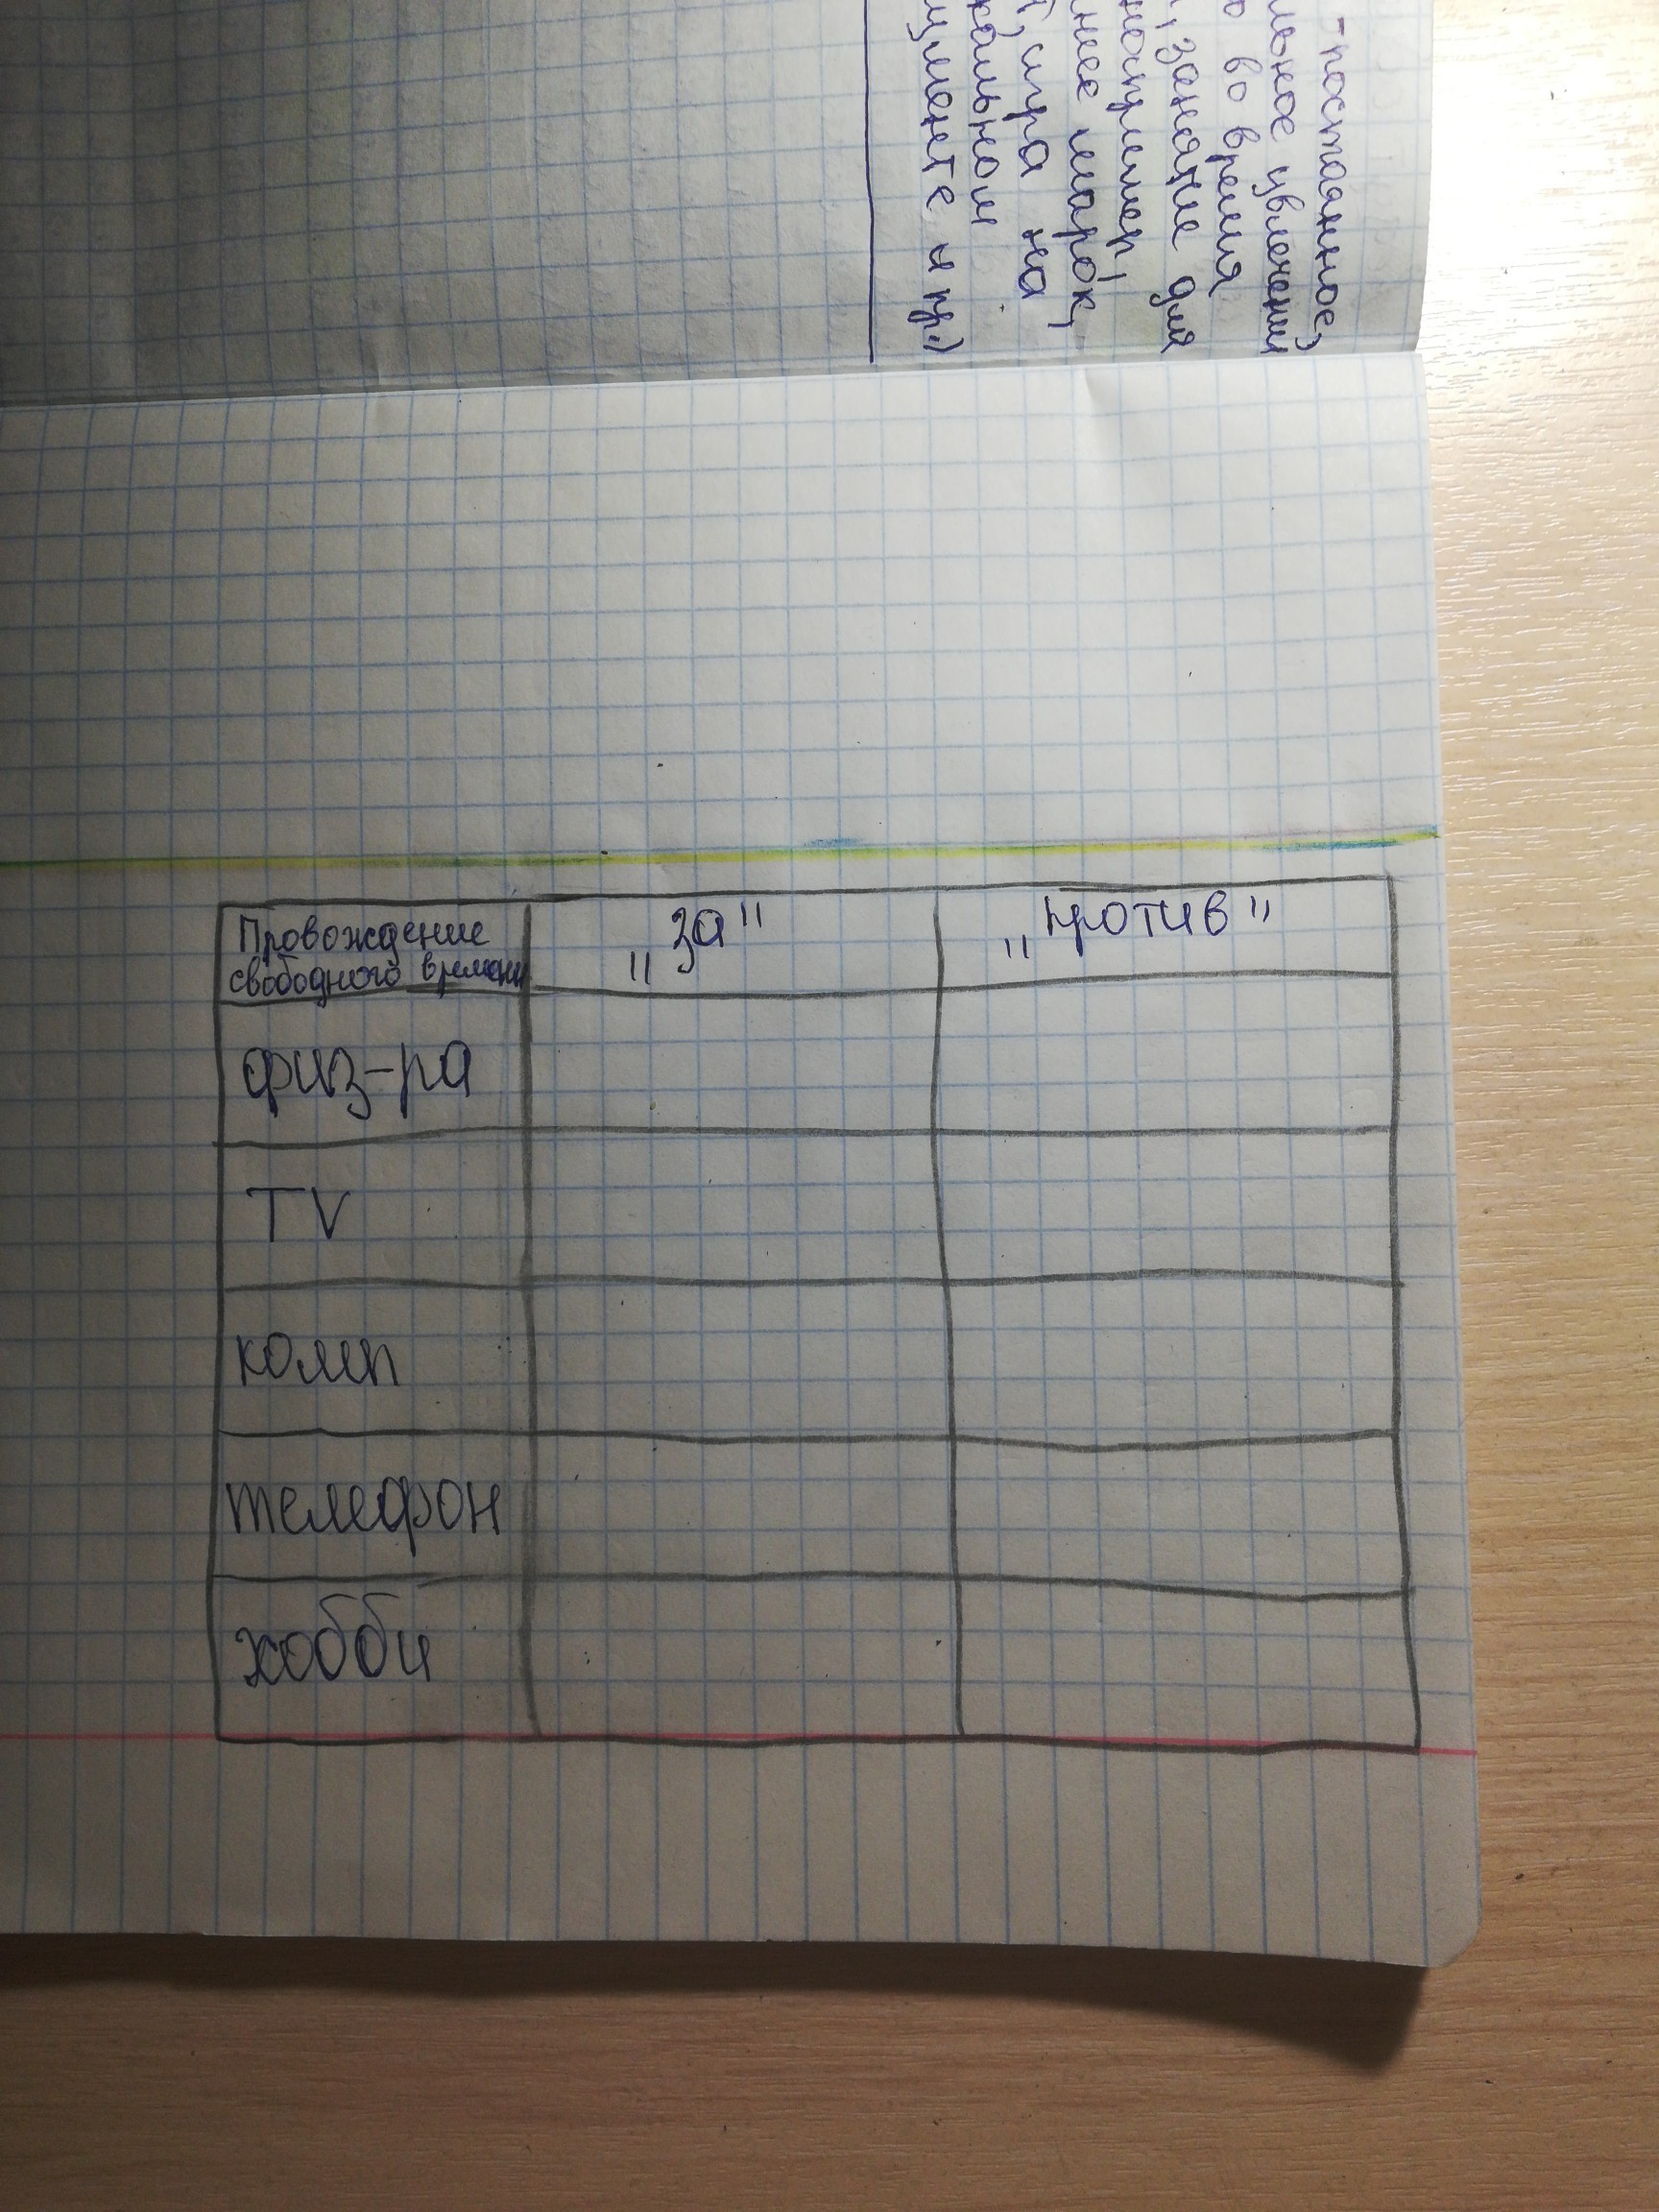 -постоянное,
льное увлечени
во время
занятие для
например,
нее марок,
игра на
кальном
ументе и пр.)
Провождение
свободного времени
„за"
„против"
физ-ра
TV
комп
телефон
хобби